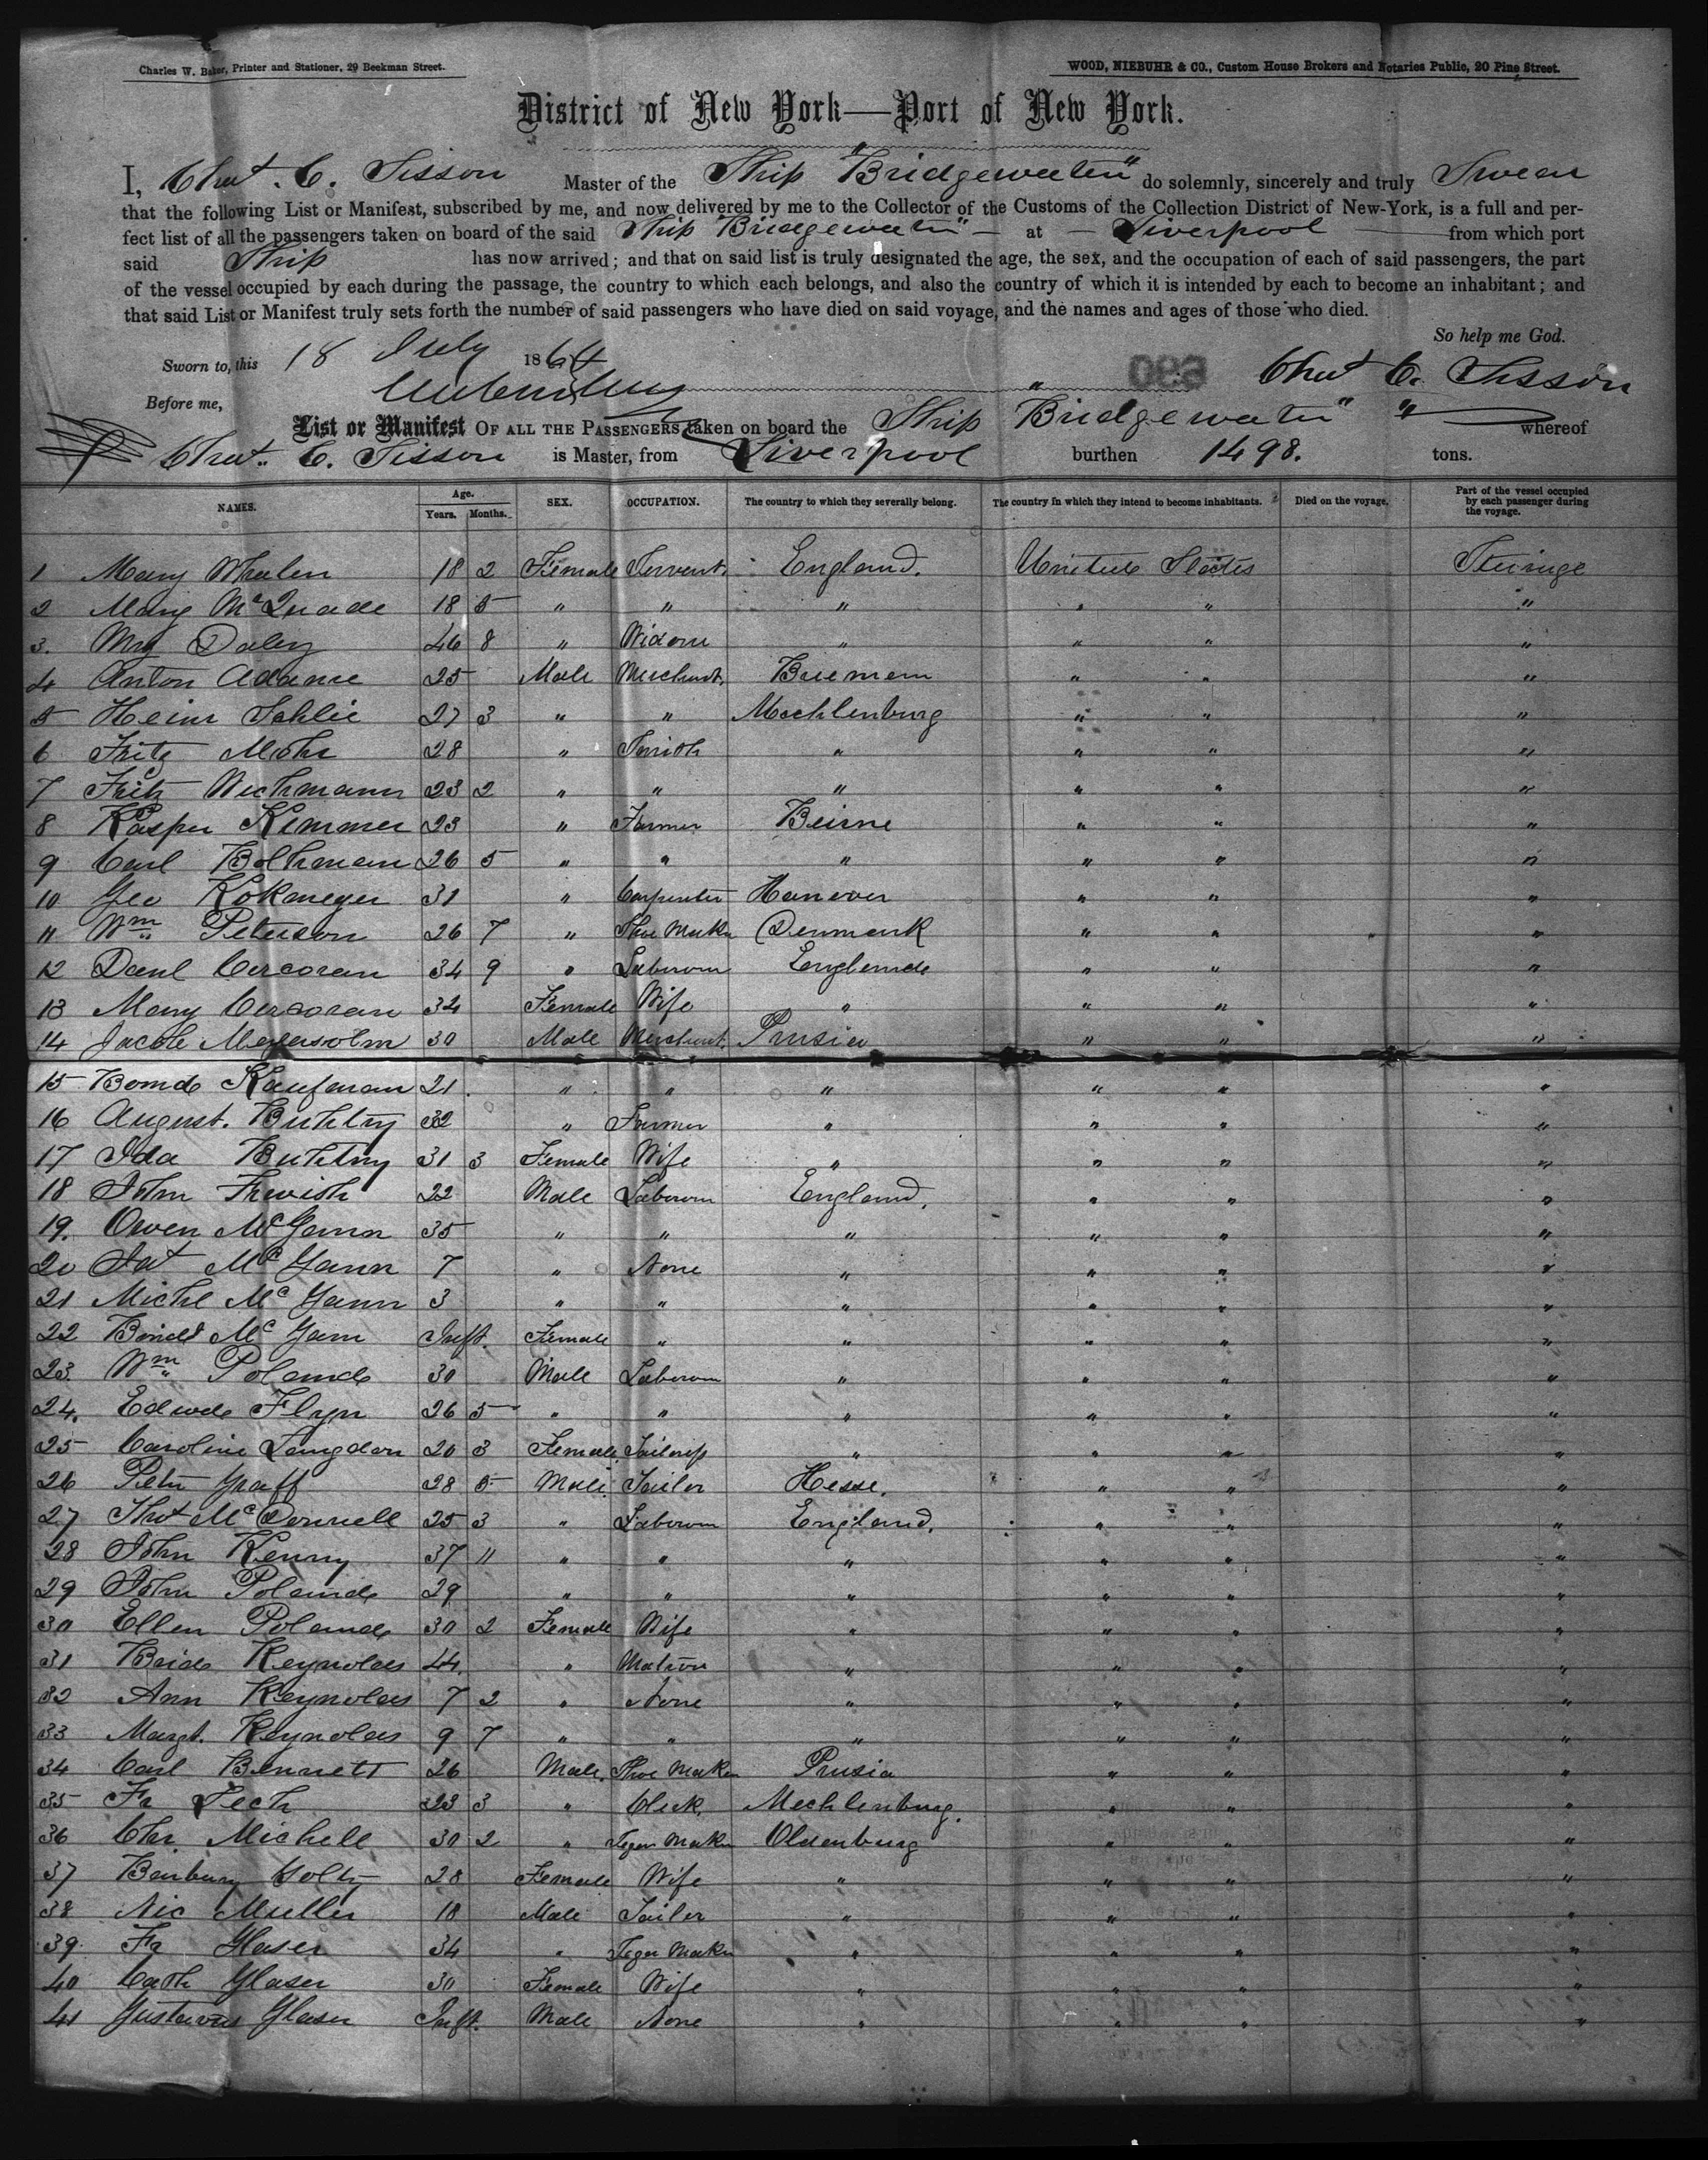 Charles W. Baker, Printer and Stationer, 29 Beekman Street.
WOOD, NIEBUHR & CO., Custom House Brokers and Notaries Public, 20 Pine Street.
District of New York—Port of New York.
I, Chst. C. Sisson Master of the Ship "Bridgewater" do solemnly, sincerely and truly Swear
that the following List or Manifest, subscribed by me, and now delivered by me to the Collector of the Customs of the Collection District of New-York, is a full and per-
fect list of all the passengers taken on board of the said Ship "Bridgewater" at Liverpool from which port
said Ship has now arrived; and that on said list is truly designated the age, the sex, and the occupation of each of said passengers, the part
of the vessel occupied by each during the passage, the country to which each belongs, and also the country of which it is intended by each to become an inhabitant; and
that said List or Manifest truly sets forth the number of said passengers who have died on said voyage, and the names and ages of those who died.
So help me God.
Sworn to, this 18 July 1864
690 Chst C. Sisson
Before me,
List or Manifest OF ALL THE PASSENGERS taken on board the Ship "Bridgewater" whereof
Chst. C. Sisson is Master, from Liverpool burthen 1498. tons.
NAMES. Age. Years. Months. SEX. OCCUPATION. The country to which they severally belong. The country in which they intend to become inhabitants. Died on the voyage. Part of the vessel occupied by each passenger during the voyage.
1 Mary Whalen 18 2 Female Servant England. United States Steerage
2 Mary McQuade 18 5 " " " " " "
3. Mry Daley 46 8 " Widow " " " "
4 Anton Adame 25 Male Merchant. Bremen " " "
5 Heinr Schlie 27 3 " " Mechlenburg " " "
6 Fritz Mohr 28 " Smith " " " "
7 Fritz Wichmann 23 2 " " " " " "
8 Kasper Kemmer 23 " Farmer " " "
9 Carl Bolhman 26 5 " " " " " "
10 Geo Kokmeyer 31 " Carpenter Hanover " " "
11 Wm Peterson 26 7 " Shoe Makr Denmark " " "
12 Danl Corcoran 34 9 " Laborer England " " "
13 Mary Corcoran 34 Female Wife " " " "
14 Jacob 30 Male Merchant. Prusia " " "
15 Kaufman 21 " " " " " "
16 August. 32 " Farmer " " " "
17 Ida 31 3 Female Wife " " " "
18 John 22 Male Laborer England. " " "
19. Owen McGann 35 " " " " " "
20 Pat McGann 7 " None " " " "
21 Michl McGann 3 " " " " " "
22 McGann Inft. Female " " " " "
23. Wm Poland 30 Male Laborer " " " "
24. Edwd Flyn 26 5 " " " " " "
25 Caroline Langdon 20 3 Female Tailoress " " " "
26 Peter Graff 28 5 Male. Tailor Hesse. " " "
27 Thos McDonnell 25 3 " Laborer England. " " "
28 John Kenny 37 11 " " " " " "
29 John Poland 29 " " " " " "
30 Ellen Poland 30 2 Female Wife " " " "
31 Brid Reynolds 44. " Matron " " " "
32 Ann Reynolds 7 2 " None " " " "
33 Margt. Reynolds 9 7 " " " " " "
34 Carl Bennett 26 Male. Shoe Makr Prusia " " "
35 Fr Tech 23 3 " Clerk. Mechlenburg. " " "
36 Chr Michell 30 2 " Segar Makr Oldenburg " " "
37 28 Female Wife " " " "
38 Nic Muller 18 Male Tailor " " " "
39. Fr Glaser 34 " Segar Makr " " " "
40 Cath Glaser 30 Female Wife " " " "
41 Gustavus Glaser Inft. Male None " " " "